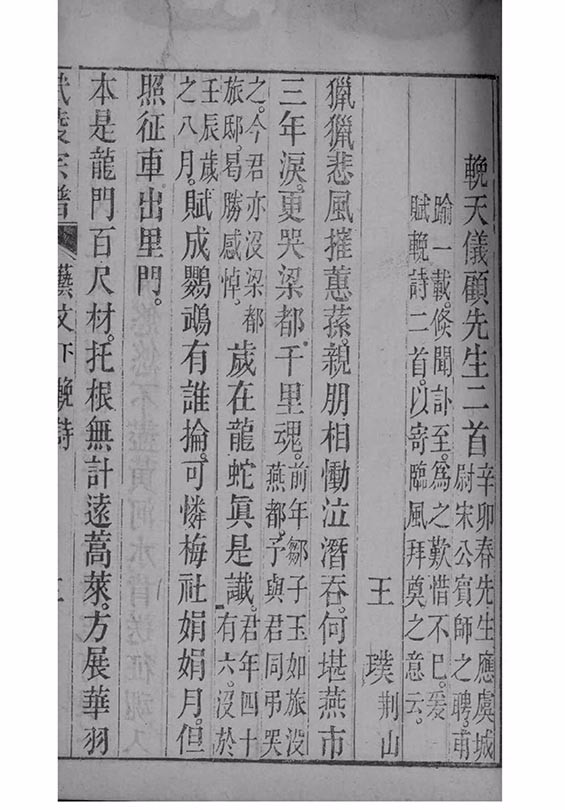 輓天儀顧先生二首辛卯春先生應虞城尉宋公賓師之聘甫
踰一載倐聞訃至為之歎惜不已爰賦輓詩二首以寄臨風拜奠之意云
王 璞荆山
獵獵悲風摧蕙蓀親朋相慟泣潛吞何堪燕市
三年淚更哭梁都千里魂前年鄒子玉如旅沒燕都予與君同弔哭
之今君亦沒梁都旅邸曷勝感悼歲在龍蛇眞是讖君年四十有六沒於
壬辰歲之八月賦成鸚鵡有誰掄可憐梅社娟娟月但
照征車出里門
本是龍門百尺材托根無計遠蒿萊方展華羽
宗譜 藝文下 輓詩